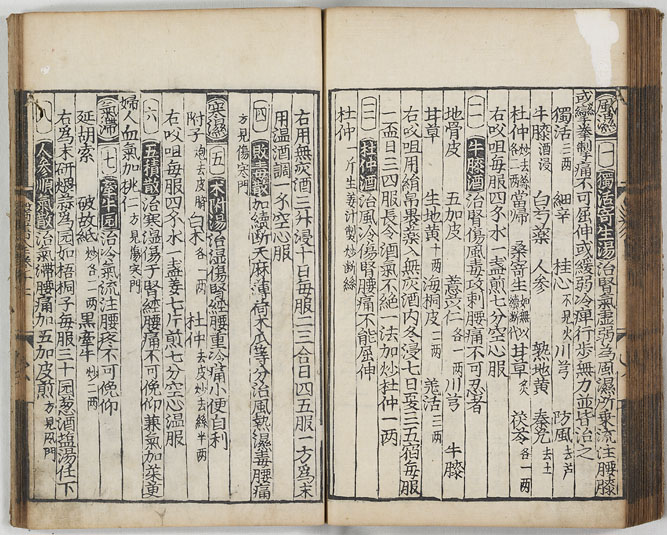 風濕 一 獨活寄生湯 治腎氣虛弱為風濕所乘流注腰膝
或攣拳掣痛不可屈伸或緩弱冷痺行步無力並皆治之
獨活三兩 細辛 桂心不見火 川芎 防風去芦
牛膝酒浸 白芍藥 人參 熟地黃 秦艽去土
杜仲炒去絲各二兩 當歸 桑寄生如無以續斷代 甘草炙 茯苓各一兩
右㕮咀每服四錢水一盞煎七分空心服
一 牛膝酒 治腎傷風毒攻刺腰痛不可忍者
地骨皮 五加皮 薏苡仁各一兩 川芎 牛膝
甘草 生地黃十兩 海桐皮二兩 羌活二兩
右㕮咀用絹帛果蓋入無灰酒內冬浸七日夏三五宿每服
一盃日三四服長令酒氣不絕一法加炒杜仲一兩
三 杜仲酒 治風冷傷腎腰痛不能屈伸
杜仲一斤生姜汁製炒斷絲
右用無灰酒三升浸十日每服二三合日四五服一方為末
用温酒調一錢空心服
四 敗毒散 加續斷天麻薄荷木瓜等分治風熱濕毒腰痛
方見傷寒門
寒濕 五 朮附湯 治濕傷腎經腰重冷痛小便自利
附子炮去皮臍 白朮各一兩 杜仲去皮炒去絲半兩
右㕮咀每服四錢水一盞姜七片煎七分空心温服
六 五積散 治寒濕傷于腎經腰痛不可俛仰兼氣加茱萸
婦人血氣加桃仁方見傷寒門
氣滯 七 牽牛圓 治冷氣流注腰疼不可俛仰
延胡索 破故紙炒各二兩 黑牽牛炒二兩
右為末研煨蒜為圓如梧桐子每服三十圓葱酒塩湯任下
八 人參順氣散 治氣滯腰痛加五加皮煎方見風門